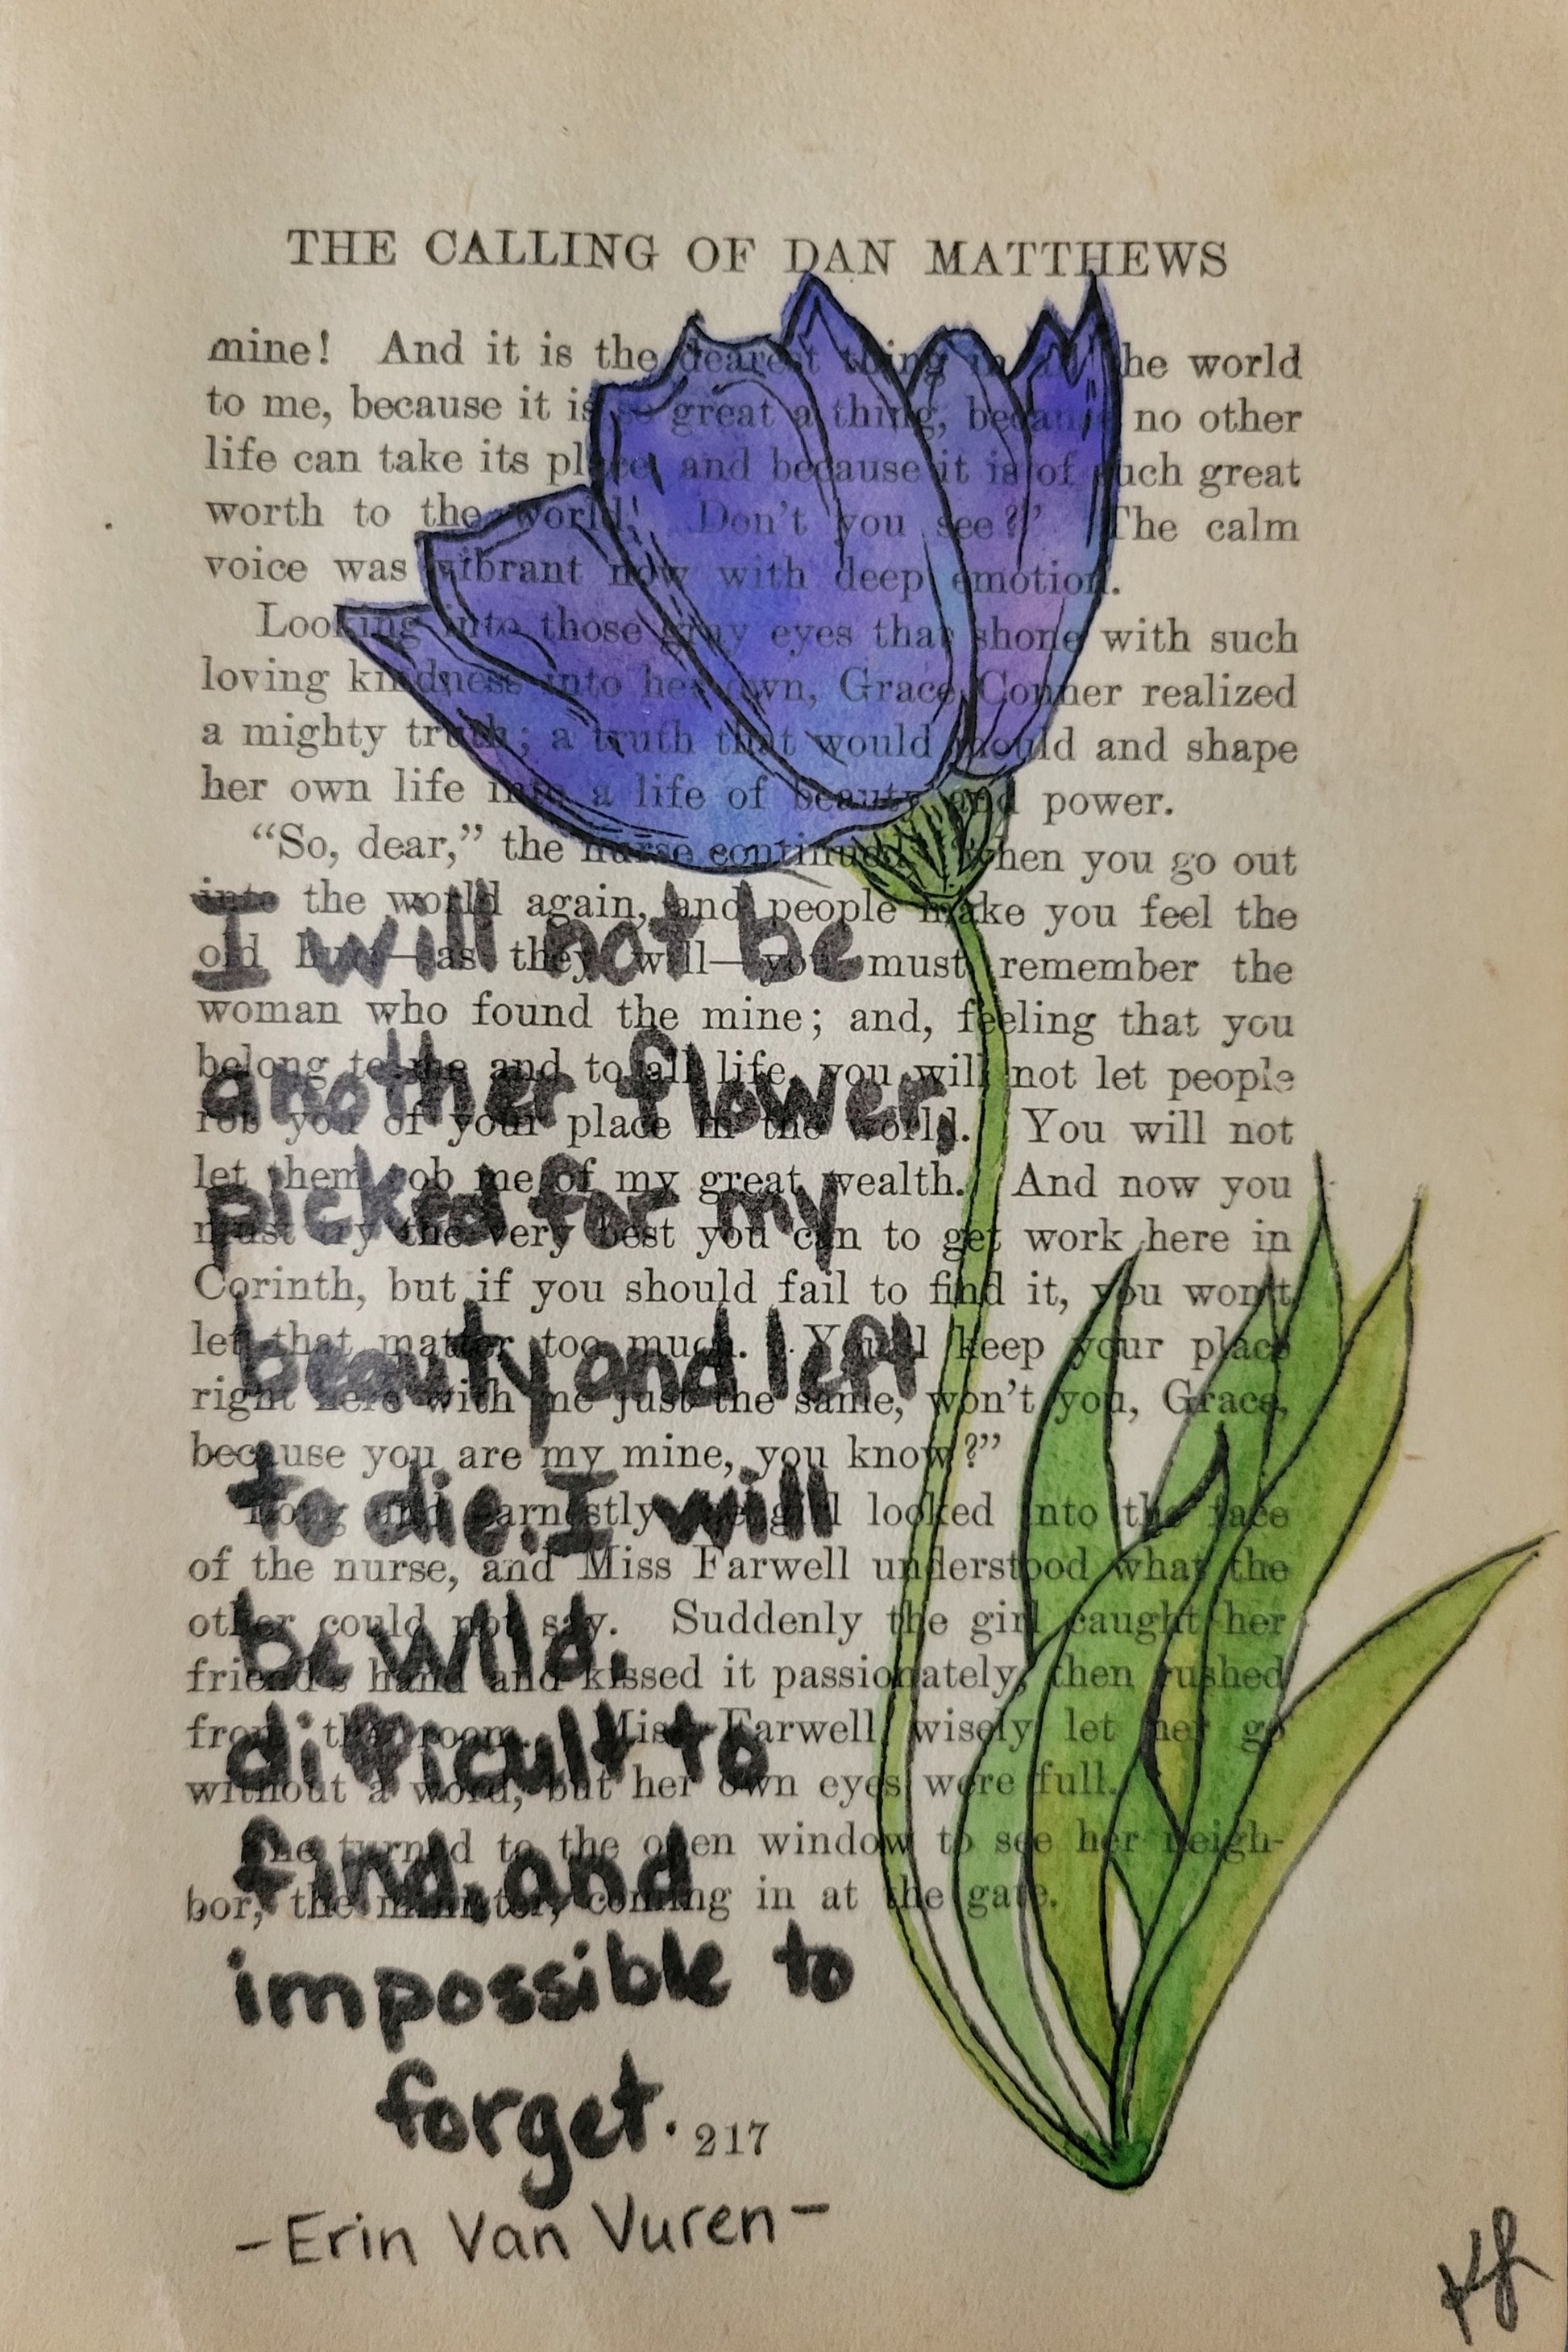 THE CALLING OF DAN MATTHEWS
mine! And it is the dearest thing in all the world
to me, because it is so great a thing, because no other
life can take its place, and because it is of such great
worth to the world. Don't you see?” The calm
voice was vibrant now with deep emotion.
Looking into those gray eyes that shone with such
loving kindness into her own, Grace Conner realized
a mighty truth; a truth that would mould and shape
her own life into a life of beauty and power.
“So, dear,” the nurse continued, “when you go out
into the world again, and people make you feel the
old hurt—as they will—you must remember the
woman who found the mine; and, feeling that you
belong to me and to all life, you will not let people
rob you of your place in the world. You will not
let them rob me of my great wealth. And now you
must try the very best you can to get work here in
Corinth, but if you should fail to find it, you won't
let that matter too much. You'll keep your place
right here with me just the same, won't you, Grace,
because you are my mine, you know?”
Long and earnestly the girl looked into the face
of the nurse, and Miss Farwell understood what the
other could not say. Suddenly the girl caught her
friend's hand and kissed it passionately, then rushed
from the room. Miss Farwell wisely let her go
without a word, but her own eyes were full.
She turned to the open window to see her neigh-
bor, the minister, coming in at the gate.
I will not be
another flower,
picked for my
beauty and left
to die. I will
be wild,
difficult to
find, and
impossible to
forget.
217
-Erin Van Vuren-